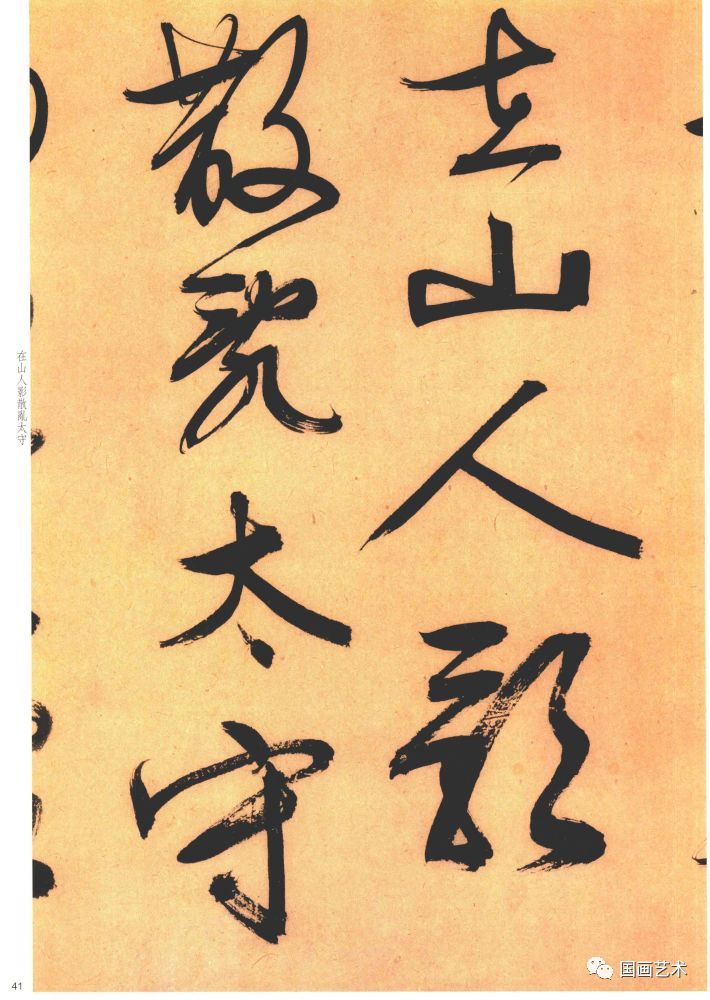 在山人影
散亂太守
在山人影散亂太守
41
国画艺术